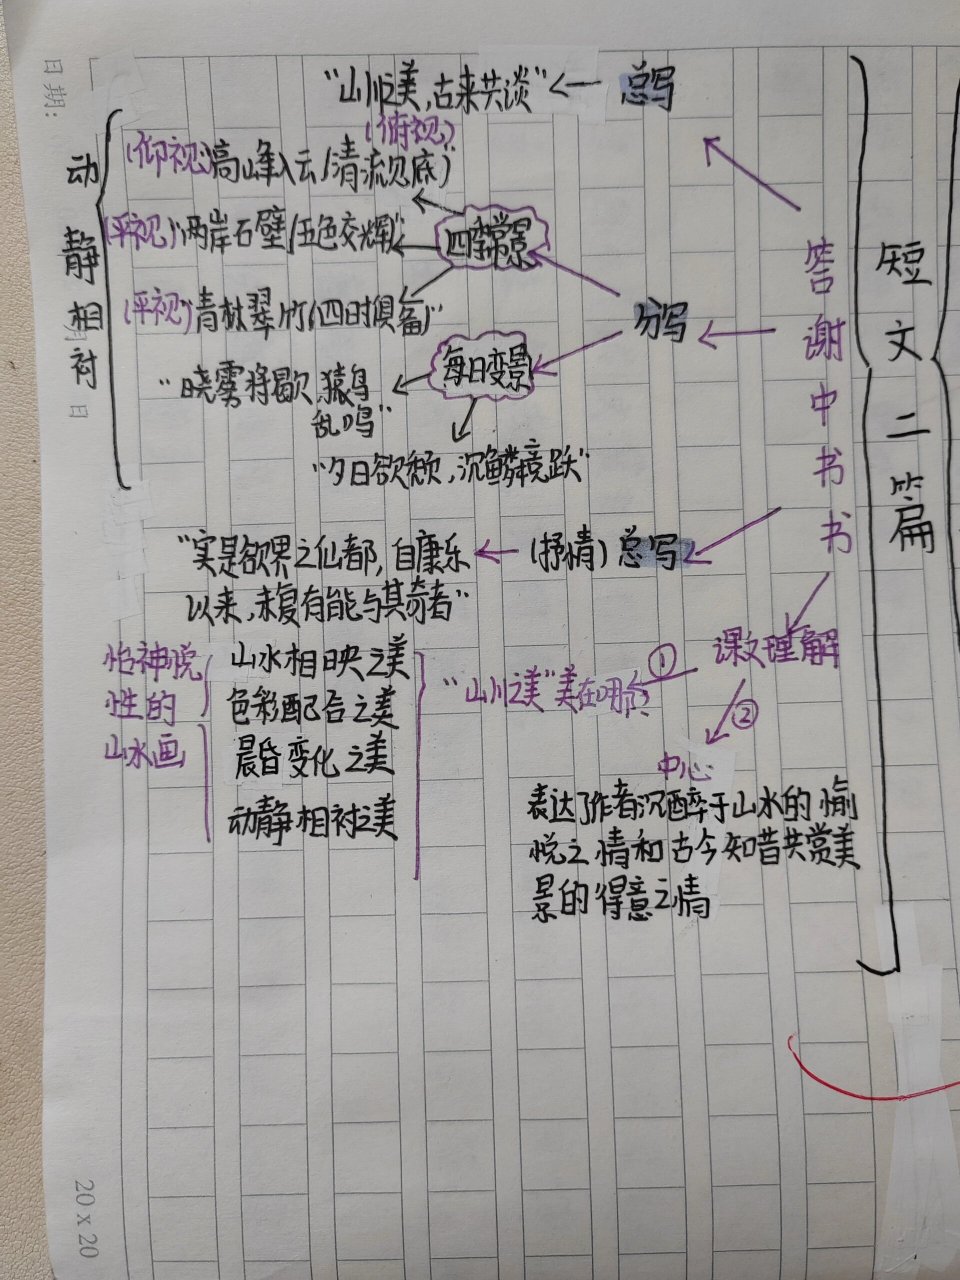 日期:
"山川之美,古来共谈" ← 总写
(俯视)
(仰视)高峰入云/清流见底"
(平视)"两岸石壁/五色交辉"
四季常景
(平视)"青林翠竹(四时俱备)"
分写
每日变景
"晓雾将歇,猿鸟
乱鸣"
"夕日欲颓,沉鳞竞跃"
动静相衬
日
月
"实是欲界之仙都,自康乐
以来,未复有能与其奇者"
(抒情)总写
答谢中书书
短文二篇
课文理解
①
"山川之美"美在哪
山水相映之美
色彩配合之美
晨昏变化之美
动静相衬之美
怡神悦
性的
山水画
②
中心:
表达了作者沉醉于山水的愉
悦之情和古今知音共赏美
景的得意之情
20 x 20